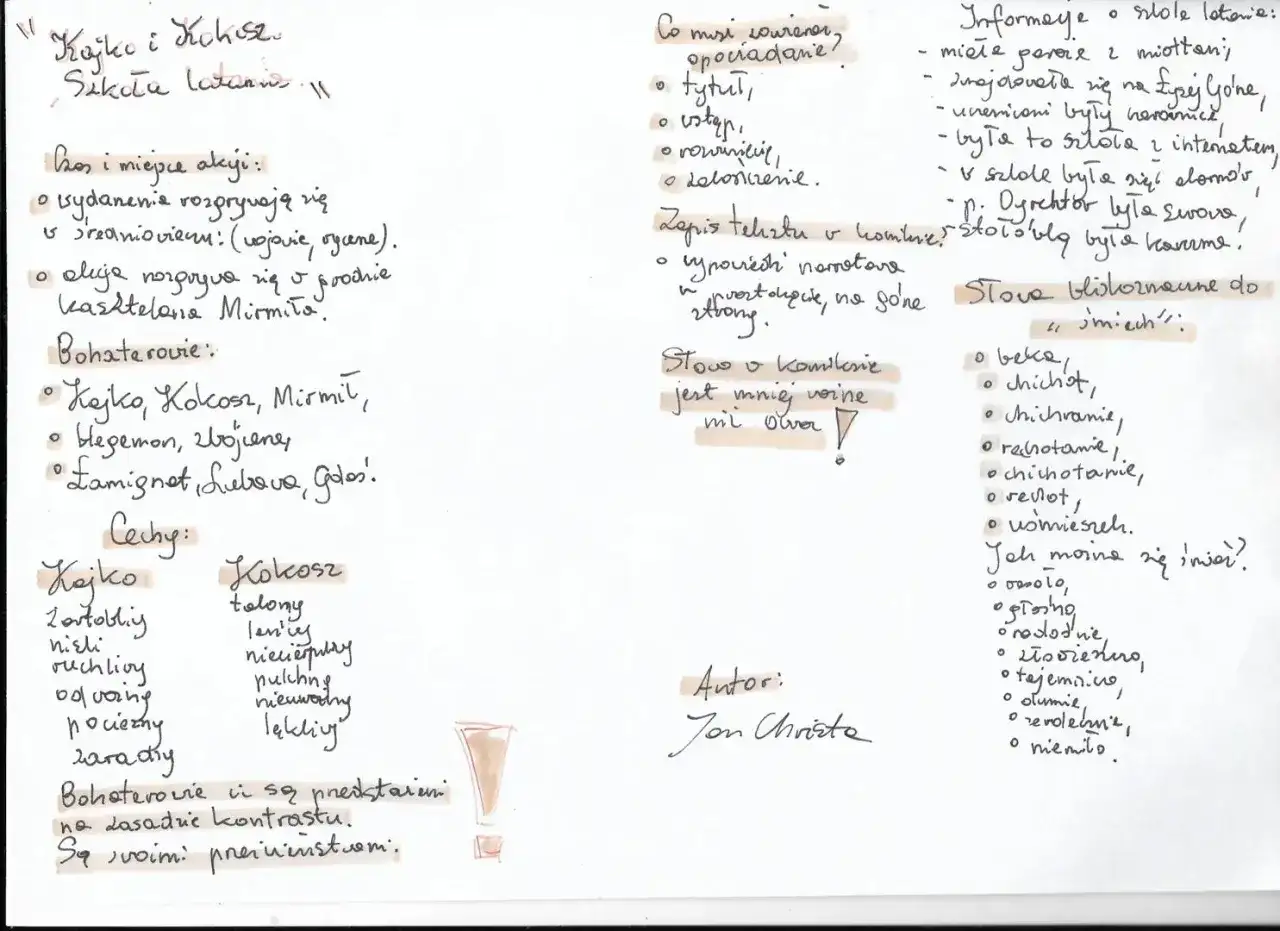 "Kajko i Kokosz.
Szkoła latania."
Czas i miejsce akcji:
• wydarzenia rozgrywają się
w średniowieczu: (wojowie, rycerze).
• akcja rozgrywa się w grodzie
kasztelana Mirmiła.
Bohaterowie:
• Kajko, Kokosz, Mirmił,
• Hegemon, zbójcerze,
• Łamignat, Lubawa, Gdaś.
Cechy:
Kajko
żartobliwy
niski
ruchliwy
odważny
pocieszny
zaradny
Kokosz
leniwy
niecierpliwy
pulchny
nieuważny
lękliwy
Bohaterowie ci są przedstawieni
na zasadzie kontrastu.
Są swoimi przeciwieństwami.
!
Co musi zawierać
opowiadanie?
• tytuł,
• wstęp,
• rozwinięcie,
• zakończenie.
Zapis tekstu w komiksie:
• wypowiedź narratora
w prostokącie, na górze
strony.
Słowo w komiksie
jest mniej ważne
niż obraz!
Autor:
Jan Christa
Informacje o szkole latania:
- miała garaże z miotłami,
- znajdowała się na Łysej Górze,
- uczennicami były czarownice,
- była to szkoła z internatem,
- w szkole było sześć domów,
- p. Dyrektor była surowa,
- stołówką była karczma.
Słowa bliskoznaczne do
"śmiech":
• beka,
• chichot,
• chichranie,
• rechotanie,
• chichotanie,
• rechot,
• uśmieszek.
Jak można się śmiać?
• wesoło,
• głośno,
• radośnie,
• złowieszczo,
• tajemniczo,
• dumnie,
• serdecznie,
• niemiło.